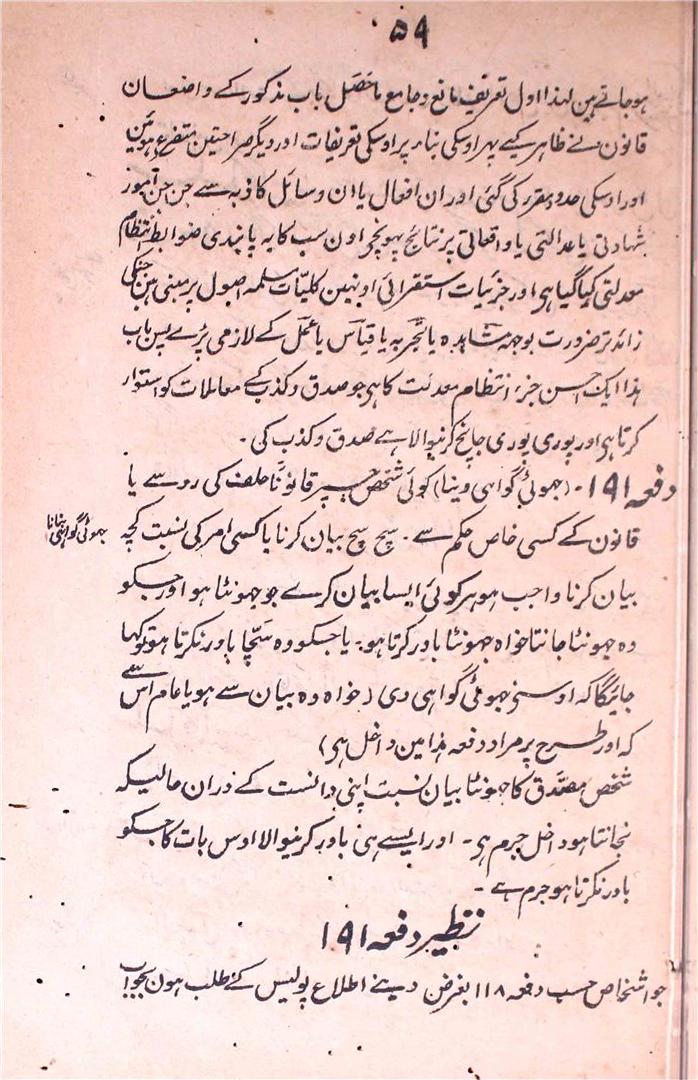 ۵۹
ہوجاتے ہین لہذا اول تعریف مانع وجامع ماحصل باب مذکور کے واضعان
قانون نے ظاہر کیے پہر اوسکی بناء پر اوسکی تعریفات اور دیگر صراحتین متفرع ہوئین
اور اوسکی حدود مقرر کی گئی اور ان افعال یا ان وسائل کاذبہ سے جن جن امور
شہادتی یا عدالتی یا واقعاتی پر نتائج پہونچے اون سب کا بہ پابندی ضوابط انتظام
معدلتی کیا گیا ہی اور جزئیات استقرائی اونہین کلیّات مسلمہ اصول پر مبنی ہین جنکی
زائد تر ضرورت بوجہ مشاہدہ یا تجربہ یا قیاس یا عمل کے لازمی پڑے پس باب
ہذا ایک احسن جزء انتظام معدلت کا ہی جو صدق وکذب کے معاملات کو استوار
کرتا ہی اور پوری پوری جانچ کرنیوالا ہے صدق وکذب کی ۔
دفعہ ۱۹۱۔ (جہوٹی گواہی دینا) کوئی شخص جسپر قانونًا حلف کی رو سے یا
قانون کے کسی خاص حکم سے ۔ سچ سچ بیان کرنا یا کسی امر کی نسبت کچہہ
جہوٹی گواہی بنانا
بیان کرنا واجب ہو پر کوئی ایسا بیان کرے جو جہونٹا ہو اور جسکو
وہ جہونٹا جانتا خواہ جہونٹا باور کرتا ہو۔ یا جسکو وہ سچّا باور نکرتا ہو تو کہا
جائیگا کہ اوسنے جہوٹی گواہی دی (خواہ وہ بیان سے ہو یا عام اس سے
کہ اور طرح پر مراد دفعہ ہذا مین داخل ہی)
شخص مصدّق کا جہونٹا بیان نسبت اپنی دانست کے درآن حالیکہ
نجانتا ہو داخل جرم ہی۔ اور ایسے ہی باور کرنیوالا اوس بات کا جسکو
باور نکرتا ہو جرم ہے ۔
نظیر دفعہ ۱۹۱
جو اشخاص حسب دفعہ ۱۱۸ بغرض دینے اطلاع پولیس کے طلب ہون بجواب